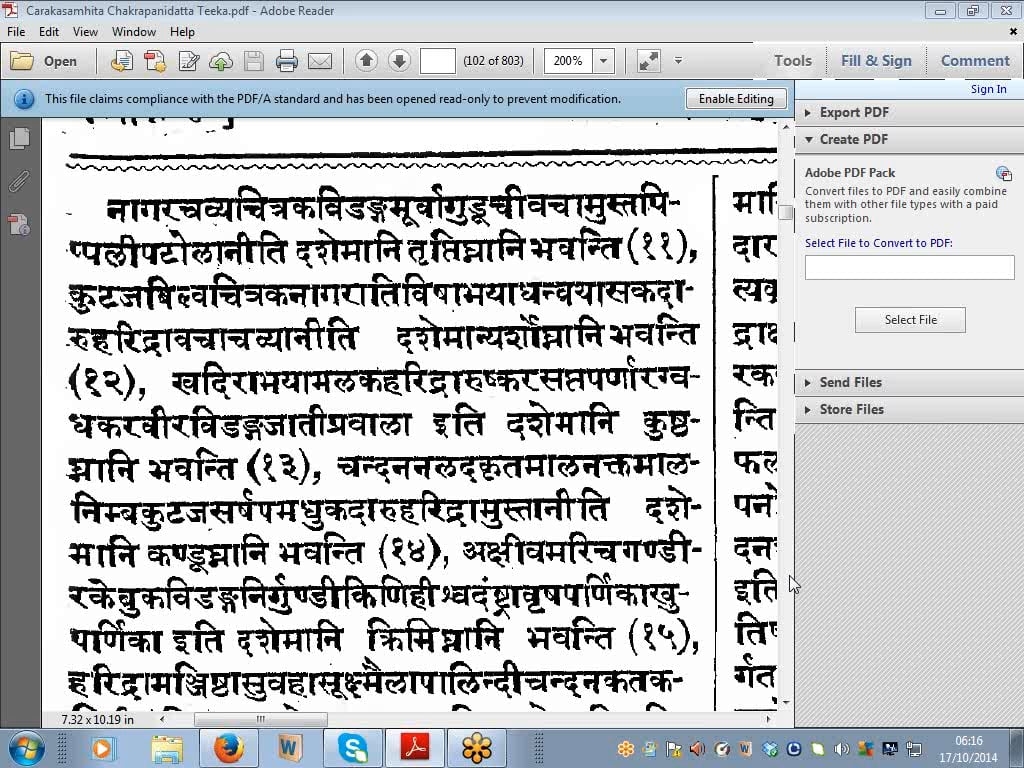 Carakasamhita Chakrapanidatta Teeka.pdf - Adobe Reader
File Edit View Window Help
Open (102 of 803) 200% Tools Fill & Sign Comment
This file claims compliance with the PDF/A standard and has been opened read-only to prevent modification. Enable Editing
Sign In
Export PDF
Create PDF
Adobe PDF Pack
Convert files to PDF and easily combine
them with other file types with a paid
subscription.
Select File to Convert to PDF:
Select File
Send Files
Store Files
नागरचव्यचित्रकविडङ्गमूर्वागुडूचीवचामुस्तापि-
प्पलीपटोलानीति दशेमानि तृप्तिघ्नानि भवन्ति (११),
कुटजबिल्वचित्रकनागरातिविषाभयाधन्वयासकदा-
रुहरिद्रावचाचव्यानीति दशेमान्यर्शोघ्नानि भवन्ति
(१२), खदिराभयामलकहरिद्रारुष्करसप्तपर्णारग्व-
धकरवीरविडङ्गजातीप्रवाला इति दशेमानि कुष्ठ-
घ्नानि भवन्ति (१३), चन्दननलदकृतमालनक्तमाल-
निम्बकुटजसर्षपमधुकदारुहरिद्रामुस्तानीति दशे-
मानि कण्डूघ्नानि भवन्ति (१४), अक्षीवमरिचगण्डी-
रकेबुकविडङ्गनिर्गुण्डीकिणिहीश्वदंष्ट्रावृषपर्णिकाखु-
पर्णिका इति दशेमानि क्रिमिघ्नानि भवन्ति (१५),
हरिद्रामञ्जिष्ठासुवहासूक्ष्मैलापालिन्दीचन्दनकतक-
दार
त्यव
द्राक्ष
रक
न्ति
फल
पन
दन
इति
तिष
र्गत
7.32 x 10.19 in
06:16
17/10/2014